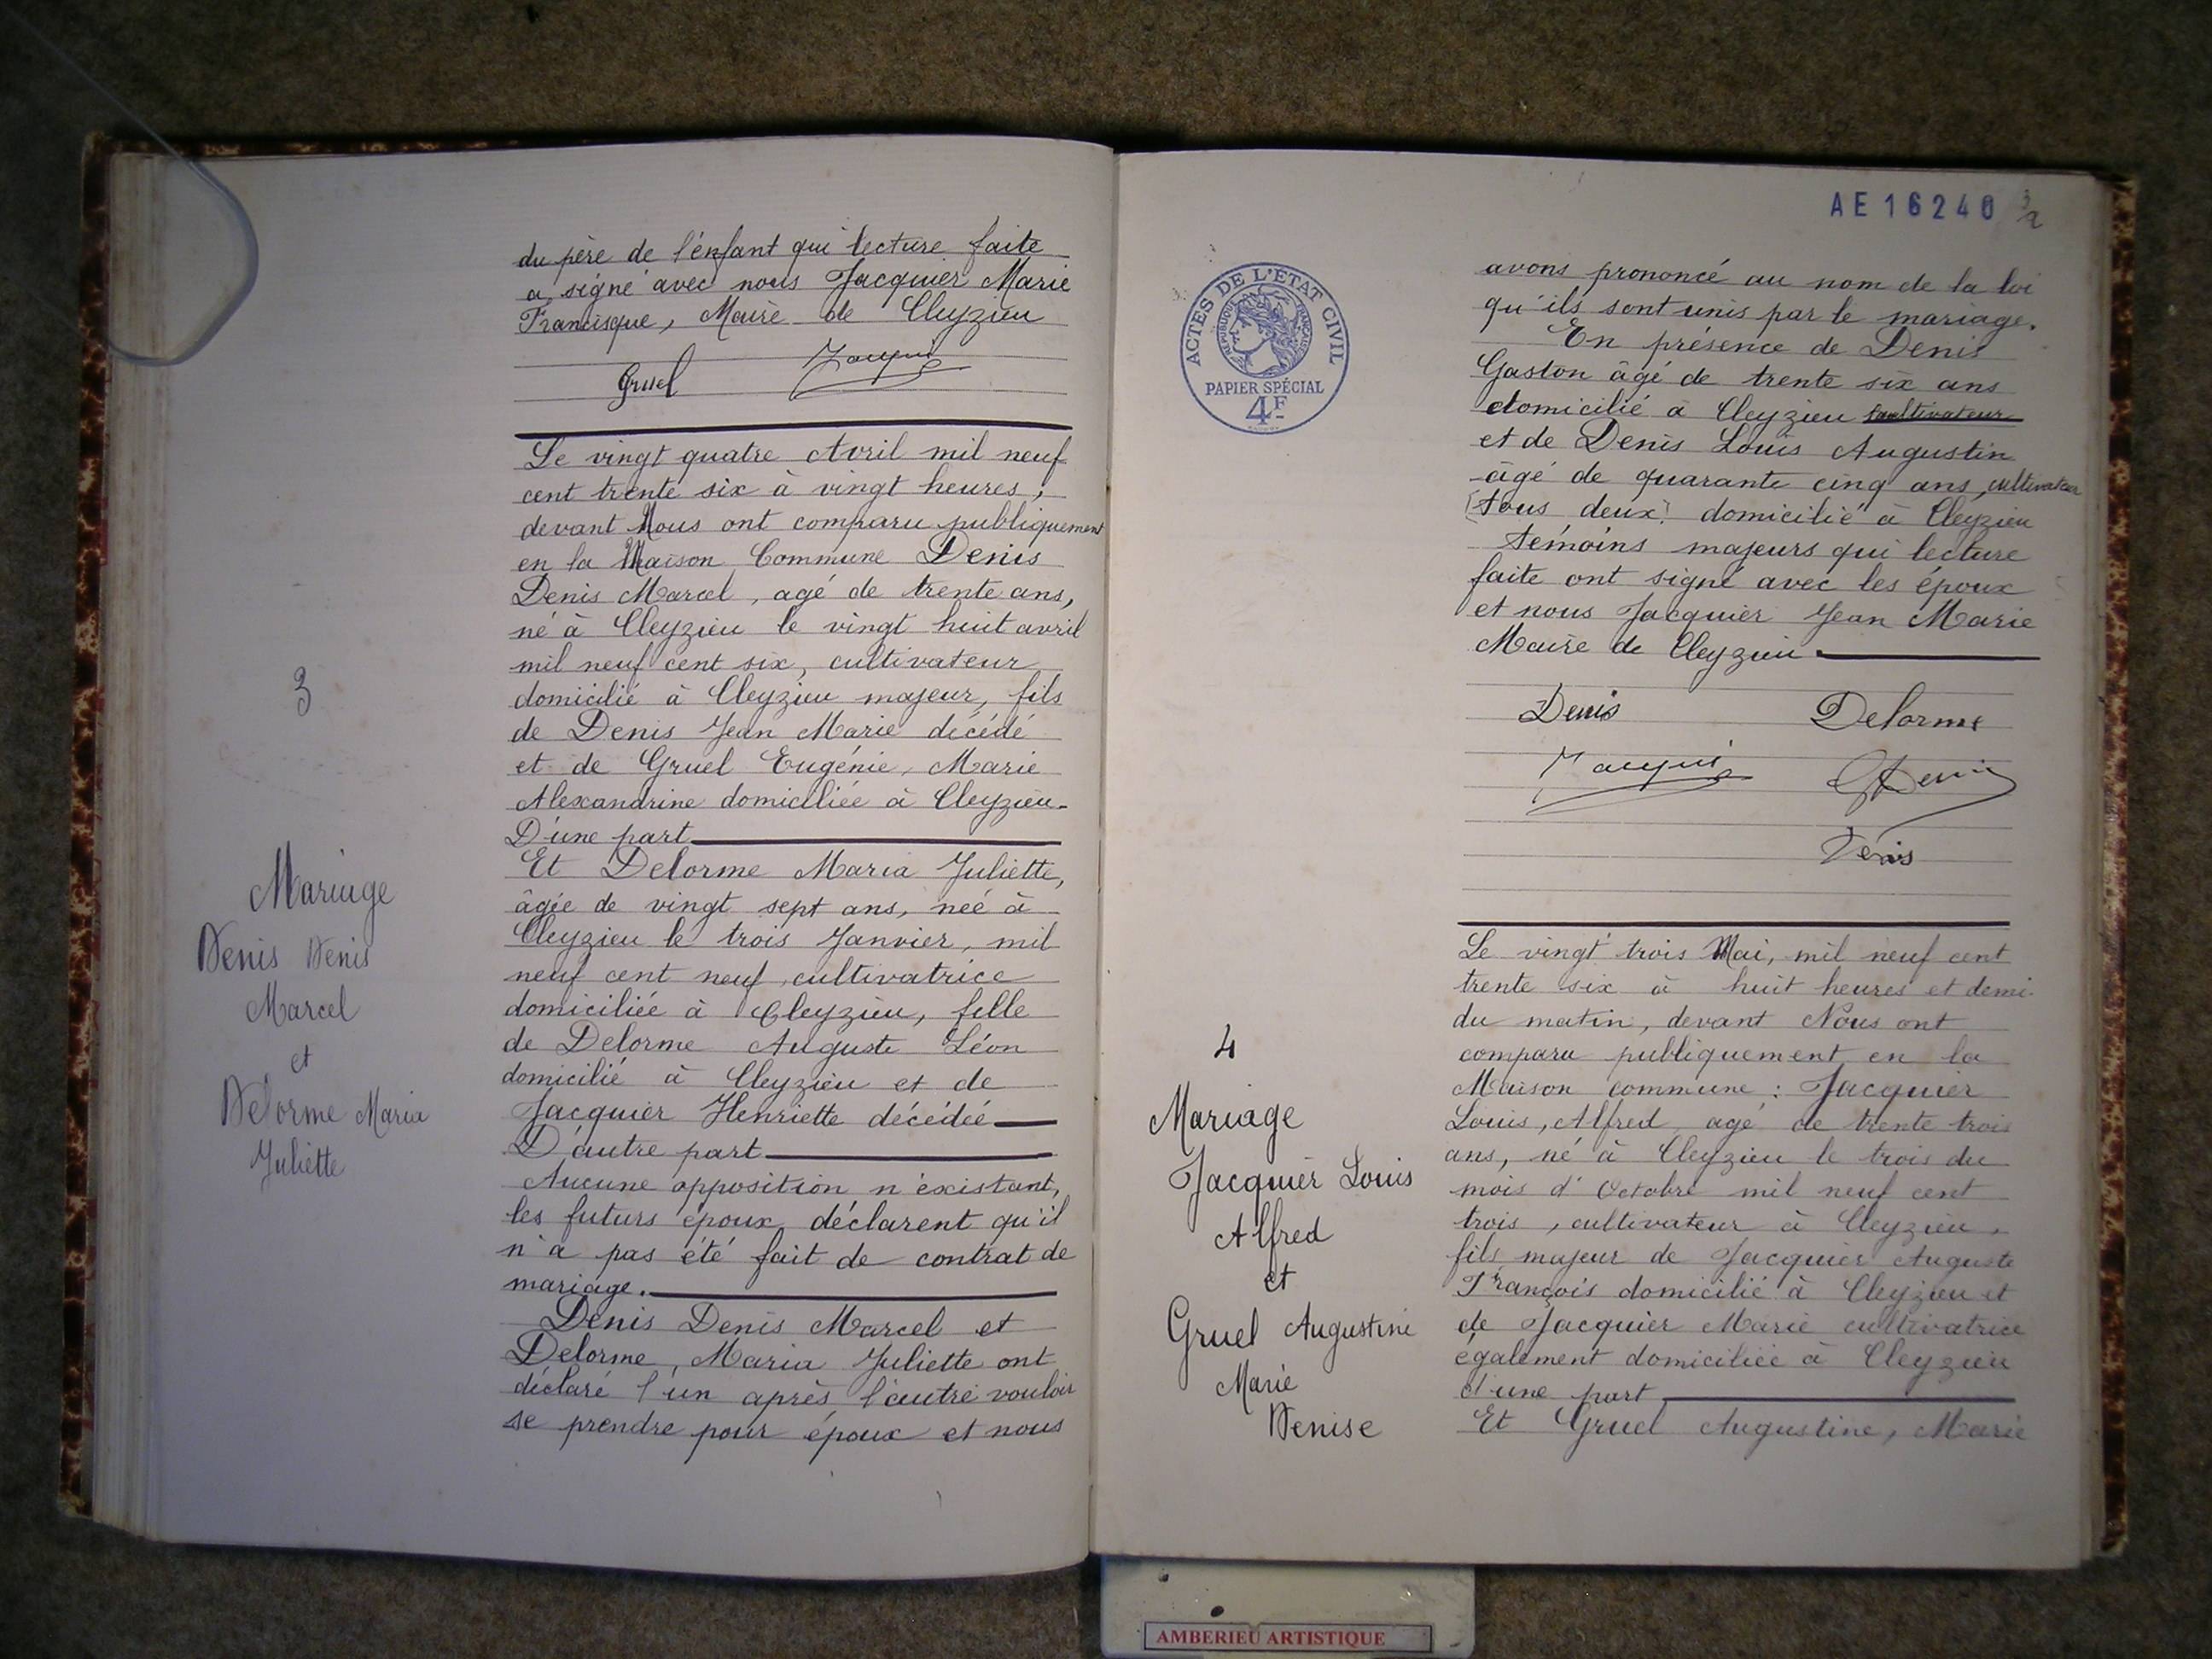 du père de l'énfant qui lecture faite
a signé avec nous Jacquier Marie
Francisque, Maire de Cleyzieu
Gruel Jacquier
3
Mariage
Denis Denis
Marcel
et
Delorme Maria
Juliette
Le vingt quatre Avril mil neuf
cent trente six à vingt heures,
devant Nous ont comparu publiquement
en la Maison Commune Denis
Denis Marcel, agé de trente ans,
né à Cleyzieu le vingt huit avril
mil neuf cent six, cultivateur
domicilié à Cleyzieu majeur, fils
de Denis Jean Marie décédé
et de Gruel Eugénie, Marie
Alexandrine domiciliée à Cleyzieu.
D'une part
Et Delorme Maria Juliette,
âgée de vingt sept ans, née à
Cleyzieu le trois Janvier, mil
neuf cent neuf, cultivatrice
domiciliée à Cleyzieu, fille
de Delorme Auguste Léon
domicilié à Cleyzieu et de
Jacquier Henriette décédée
D'autre part
Aucune opposition n'éxistant,
les futurs époux déclarent qu'il
n'a pas été fait de contrat de
mariage.
Denis Denis Marcel et
Delorme, Maria Juliette ont
déclaré l'un après l'autre vouloir
se prendre pour époux et nous
AE16240
ACTES DE L'ETAT CIVIL
REPUBLIQUE FRANÇAISE
PAPIER SPÉCIAL
4F
avons prononcé au nom de la loi
qu'ils sont unis par le mariage.
En présence de Denis
Gaston âgé de trente six ans
domicilié à Cleyzieu cultivateur
et de Denis Louis Augustin
âgé de quarante cinq ans, cultivateur
[tous deux] domicilié à Cleyzieu
témoins majeurs qui lecture
faite ont signé avec les époux
et nous Jacquier Jean Marie
Maire de Cleyzieu.
Denis Delorme
Jacquier G Denis
Denis
4
Mariage
Jacquier Louis
Alfred
et
Gruel Augustine
Marie
Denise
Le vingt trois Mai, mil neuf cent
trente six à huit heures et demi
du matin, devant Nous ont
comparu publiquement en la
Maison commune : Jacquier
Louis, Alfred agé de trente trois
ans, né à Cleyzieu le trois du
mois d'Octobre mil neuf cent
trois, cultivateur à Cleyzieu,
fils majeur de Jacquier Auguste
François domicilié à Cleyzieu et
de Jacquier Marie cultivatrice
également domiciliée à Cleyzieu
d'une part
Et Gruel Augustine, Marie
AMBERIEU ARTISTIQUE